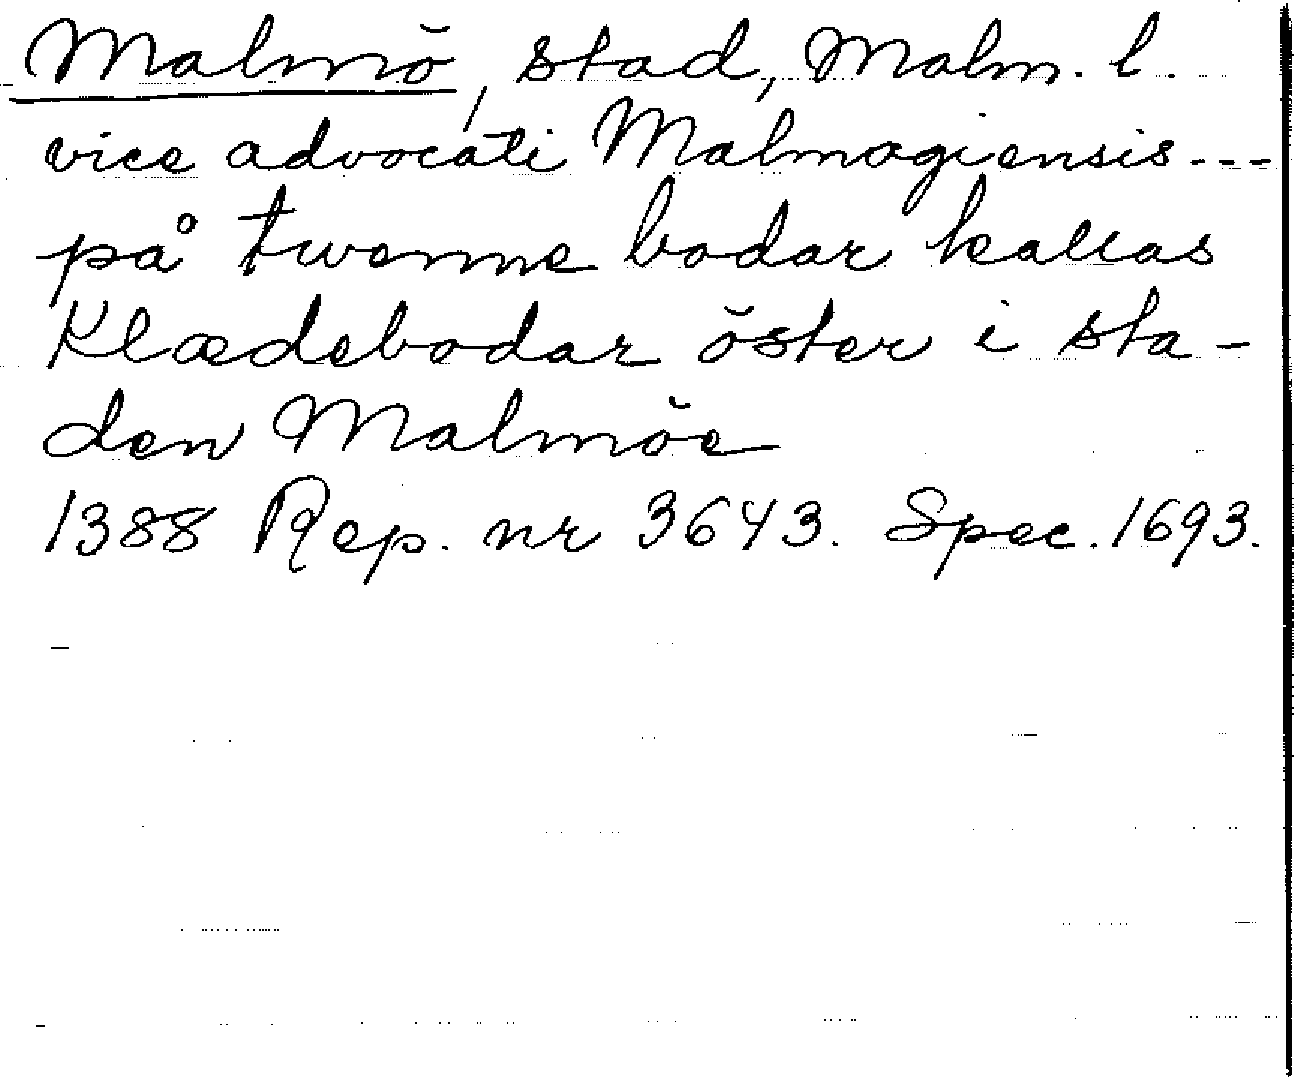 Malmö, stad, Malm. l.
vice advocati Malmogiensis ---
på twenne bodar kallas
Klædebodar öster i sta-
den Malmöe
1388 Rep. nr 3643. Spec. 1693.